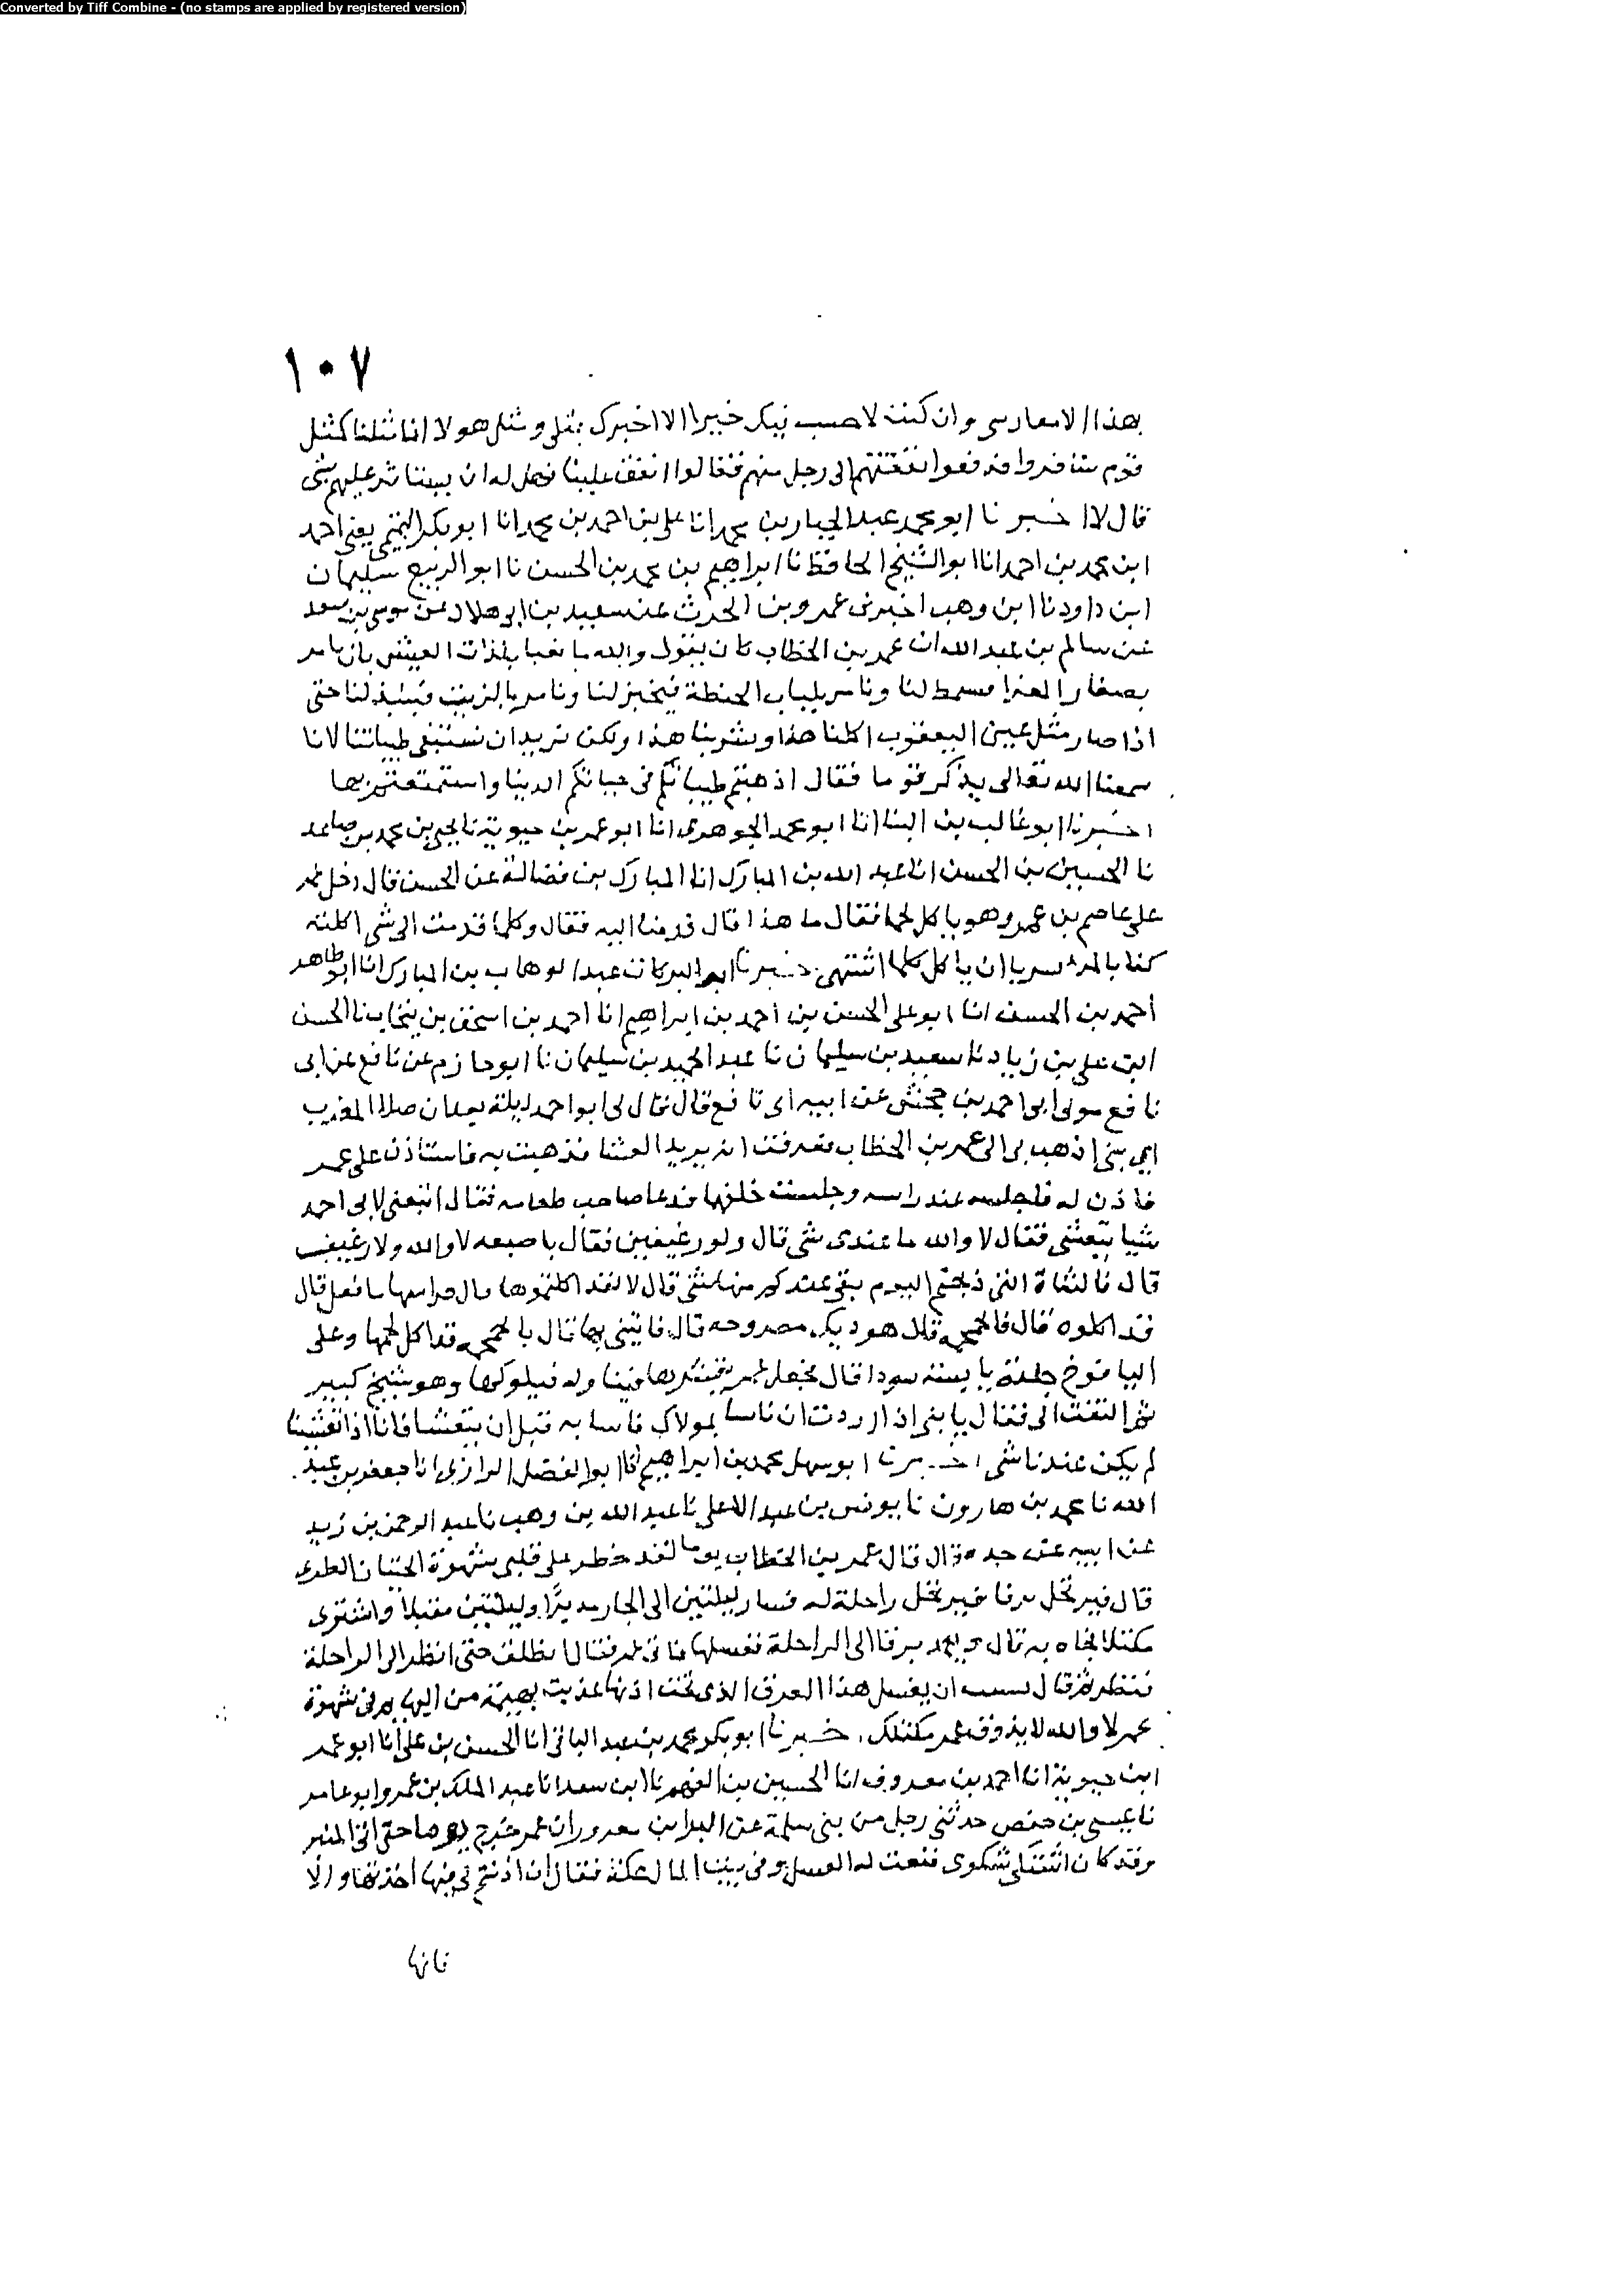 Converted by Tiff Combine - (no stamps are applied by registered version)
١٠٧
بهذا الا معارسى وان كنت لاحسب فيكر خيرا الا اخبرك بمثلى ومثل هولا انا مثلنا كمثل
قوم سافروا فدفعوا نفقتهم الى رجل منهم فقالوا انفق علينا فهل له ان يستاثر عليهم بشى
قال لا اخبرنا ابو محمد عبد الجبار بن محمد انا على بن احمد بن محمد انا ابو بكر التميمى يعنى احمد
ابن محمد بن احمد انا ابو الشيخ الحافظ نا ابراهيم بن محمد بن الحسن نا ابو الربيع سليمان
ابن داود نا ابن وهب اخبرنى عمرو بن الحرث عن سعيد بن ابى هلال عن موسى بن سعد
عن سالم بن عبد الله ان عمر بن الخطاب كان يقول والله ما نعبا بلذات العيش بان نامر
بصغار المعزا فتسمط لنا ونامر بلباب الحنطة فيخبز لنا ونامر بالزبيب فينبذ لنا حتى
اذا صار مثل عين اليعقوب اكلنا هذا وشربنا هذا ولكن نريد ان نستبقى طيباتنا لانا
سمعنا الله تعالى يذكر قوما فقال اذهبتم طيباتكم فى حياتكم الدنيا واستمتعتم بها
اخبرنا ابو غالب بن البنا انا ابو محمد الجوهرى انا ابو عمر بن حيوية نا يحيى بن محمد بن صاعد
نا الحسين بن الحسن انا عبد الله بن المبارك انا المبارك بن فضالة عن الحسن قال دخل عمر
على عاصم بن عمر وهو ياكل لحما فقال ما هذا قال قرمنا اليه فقال وكلما قرمت الى شى اكلته
كفا بالمرء سرفا ان ياكل كلما اشتهى اخبرنا ابو البركات عبد الوهاب بن المبارك انا ابو طاهر
احمد بن الحسن انا ابو على الحسن بن احمد بن ابراهيم انا احمد بن اسحق بن ينخاب نا الحسن
ابن على بن زياد نا سعيد بن سليمان نا عبد الحميد بن سليمان نا ابو حازم عن نافع عن ابى
نافع مولى ابى احمد بن جحش عن ابيه اى نافع قال قال لى ابو احمد ليلة بعد ان صلا المغرب
اى بنى اذهب بى الى عمر بن الخطاب فعرفت انه يريد العشا فذهبت به فاستاذن على عمر
فاذن له فاجلسه عند راسه وجلست خلفها فدعا صاحب طعامه فقال ابتغى لابى احمد
شيا يتعشى فقال لا والله ما عندى شى قال ولو رغيفين فقال باصبعه لا والله ولا رغيف
قال فالشاة التى ذبحتم اليوم بقى عندكم منها شى قال لا لقد اكلتموها قال فراسها ما فعل قال
قد اكلوه قال فالجمجمه قال هو ذيك مصروحه قال فاتينى بها قال بالجمجمه قد اكل لحمها وعلى
اليافوخ جلدة يابسة سودا قال فجعل عمر يقشرها فينا وله فيلوكها وهو شيخ كبير
ثم التفت الى فقال يا بنى اذا اردت ان تاتينا بمولاك فاتنا به قبل ان يتعشا فانا اذا تعشينا
لم يكن عندنا شى اخبرنا ابو سهل محمد بن ابراهيم انا ابو الفضل الرازى انا جعفر بن عبد
الله نا محمد بن هارون نا يونس بن عبد الاعلى نا عبد الله بن وهب نا عبد الرحمن بن زيد
عن ابيه عن جده قال قال عمر بن الخطاب يوما لقد خطر على قلبى شهوة الحيتان الطرى
قال فيرحل يرفا فيرحل راحلة له فسار ليلتين الى الجار مدبرا وليلتين مقبلا واشترى
مكتلا فجاه به قال ويعمد يرفا الى الراحلة فغسلها فاتى عمر فقال انطلق حتى انظر الى الراحلة
فنظر ثم قال نسيت ان يغسل هذا العرق الذى تحت اذنها عذبت بهيمة من البهايم فى شهوة
عمر لا والله لا يذوق عمر مكتلك اخبرنا ابو بكر محمد بن عبد الباقى انا الحسن بن على انا ابو عمر
ابن حيوية انا احمد بن معروف انا الحسين بن الفهم نا ابن سعد انا عبد الملك بن عمرو ابو عامر
نا عيسى بن حفص حدثنى رجل من بنى سلمة عن البرا بن معرور ان عمر خرج يوما حتى اتى المنبر
وقد كان اشتكى شكوى فنعت له العسل وفى بيت المال عكة فقال ان اذنتم لى فيها اخذتها والا
فانها